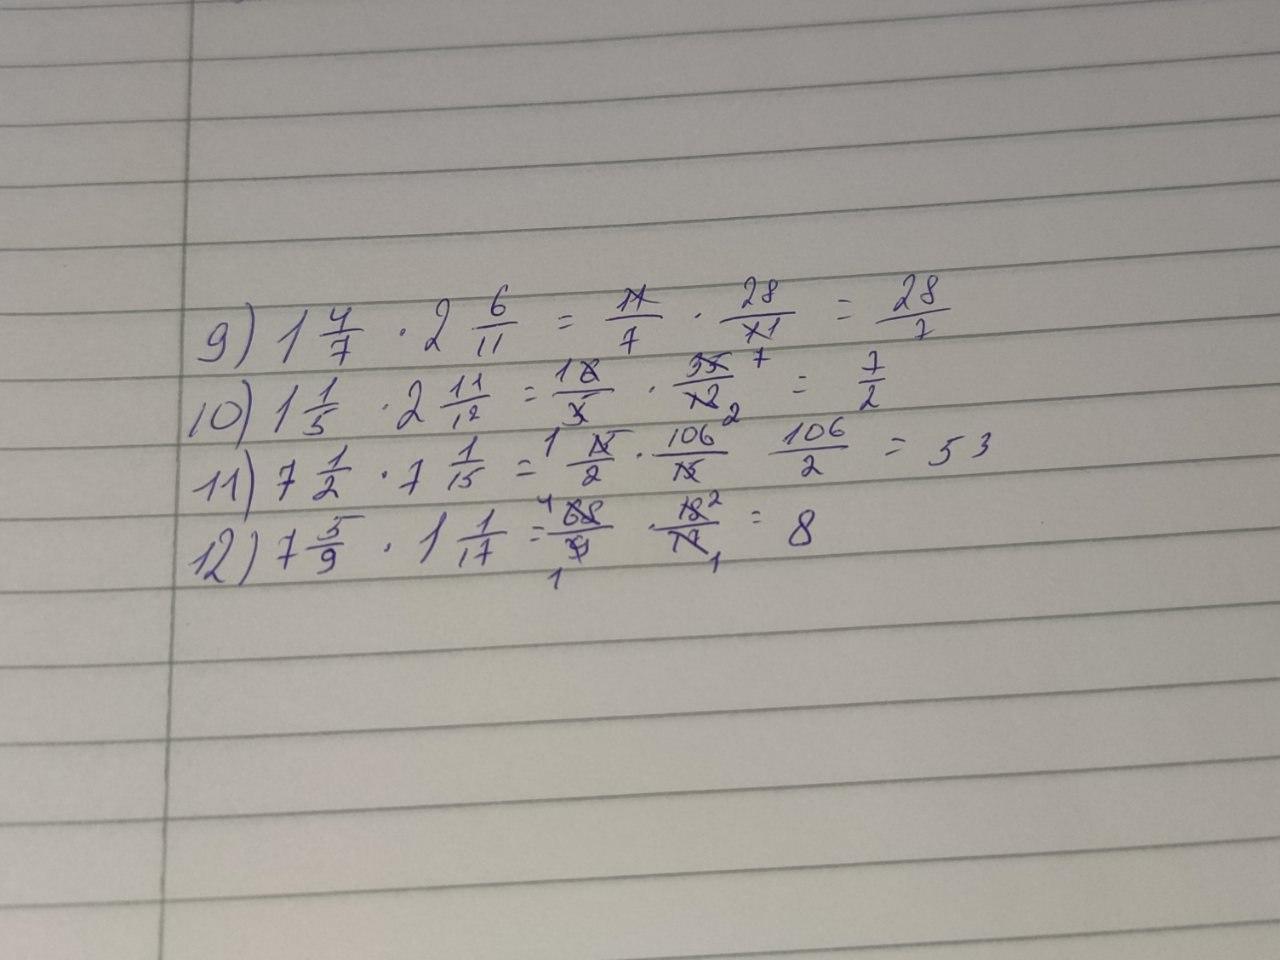 9) 1 4/7 · 2 6/11 = 11/7 · 28/11 = 28/7
10) 1 1/5 · 2 11/12 = 18/5 · 35/12 7 2 = 7/2
11) 7 1/2 · 7 1/15 = 1 15/2 · 106/15 2 106/2 = 53
12) 7 5/9 · 1 1/17 = 4 68/9 1 · 18/17 2 1 = 8